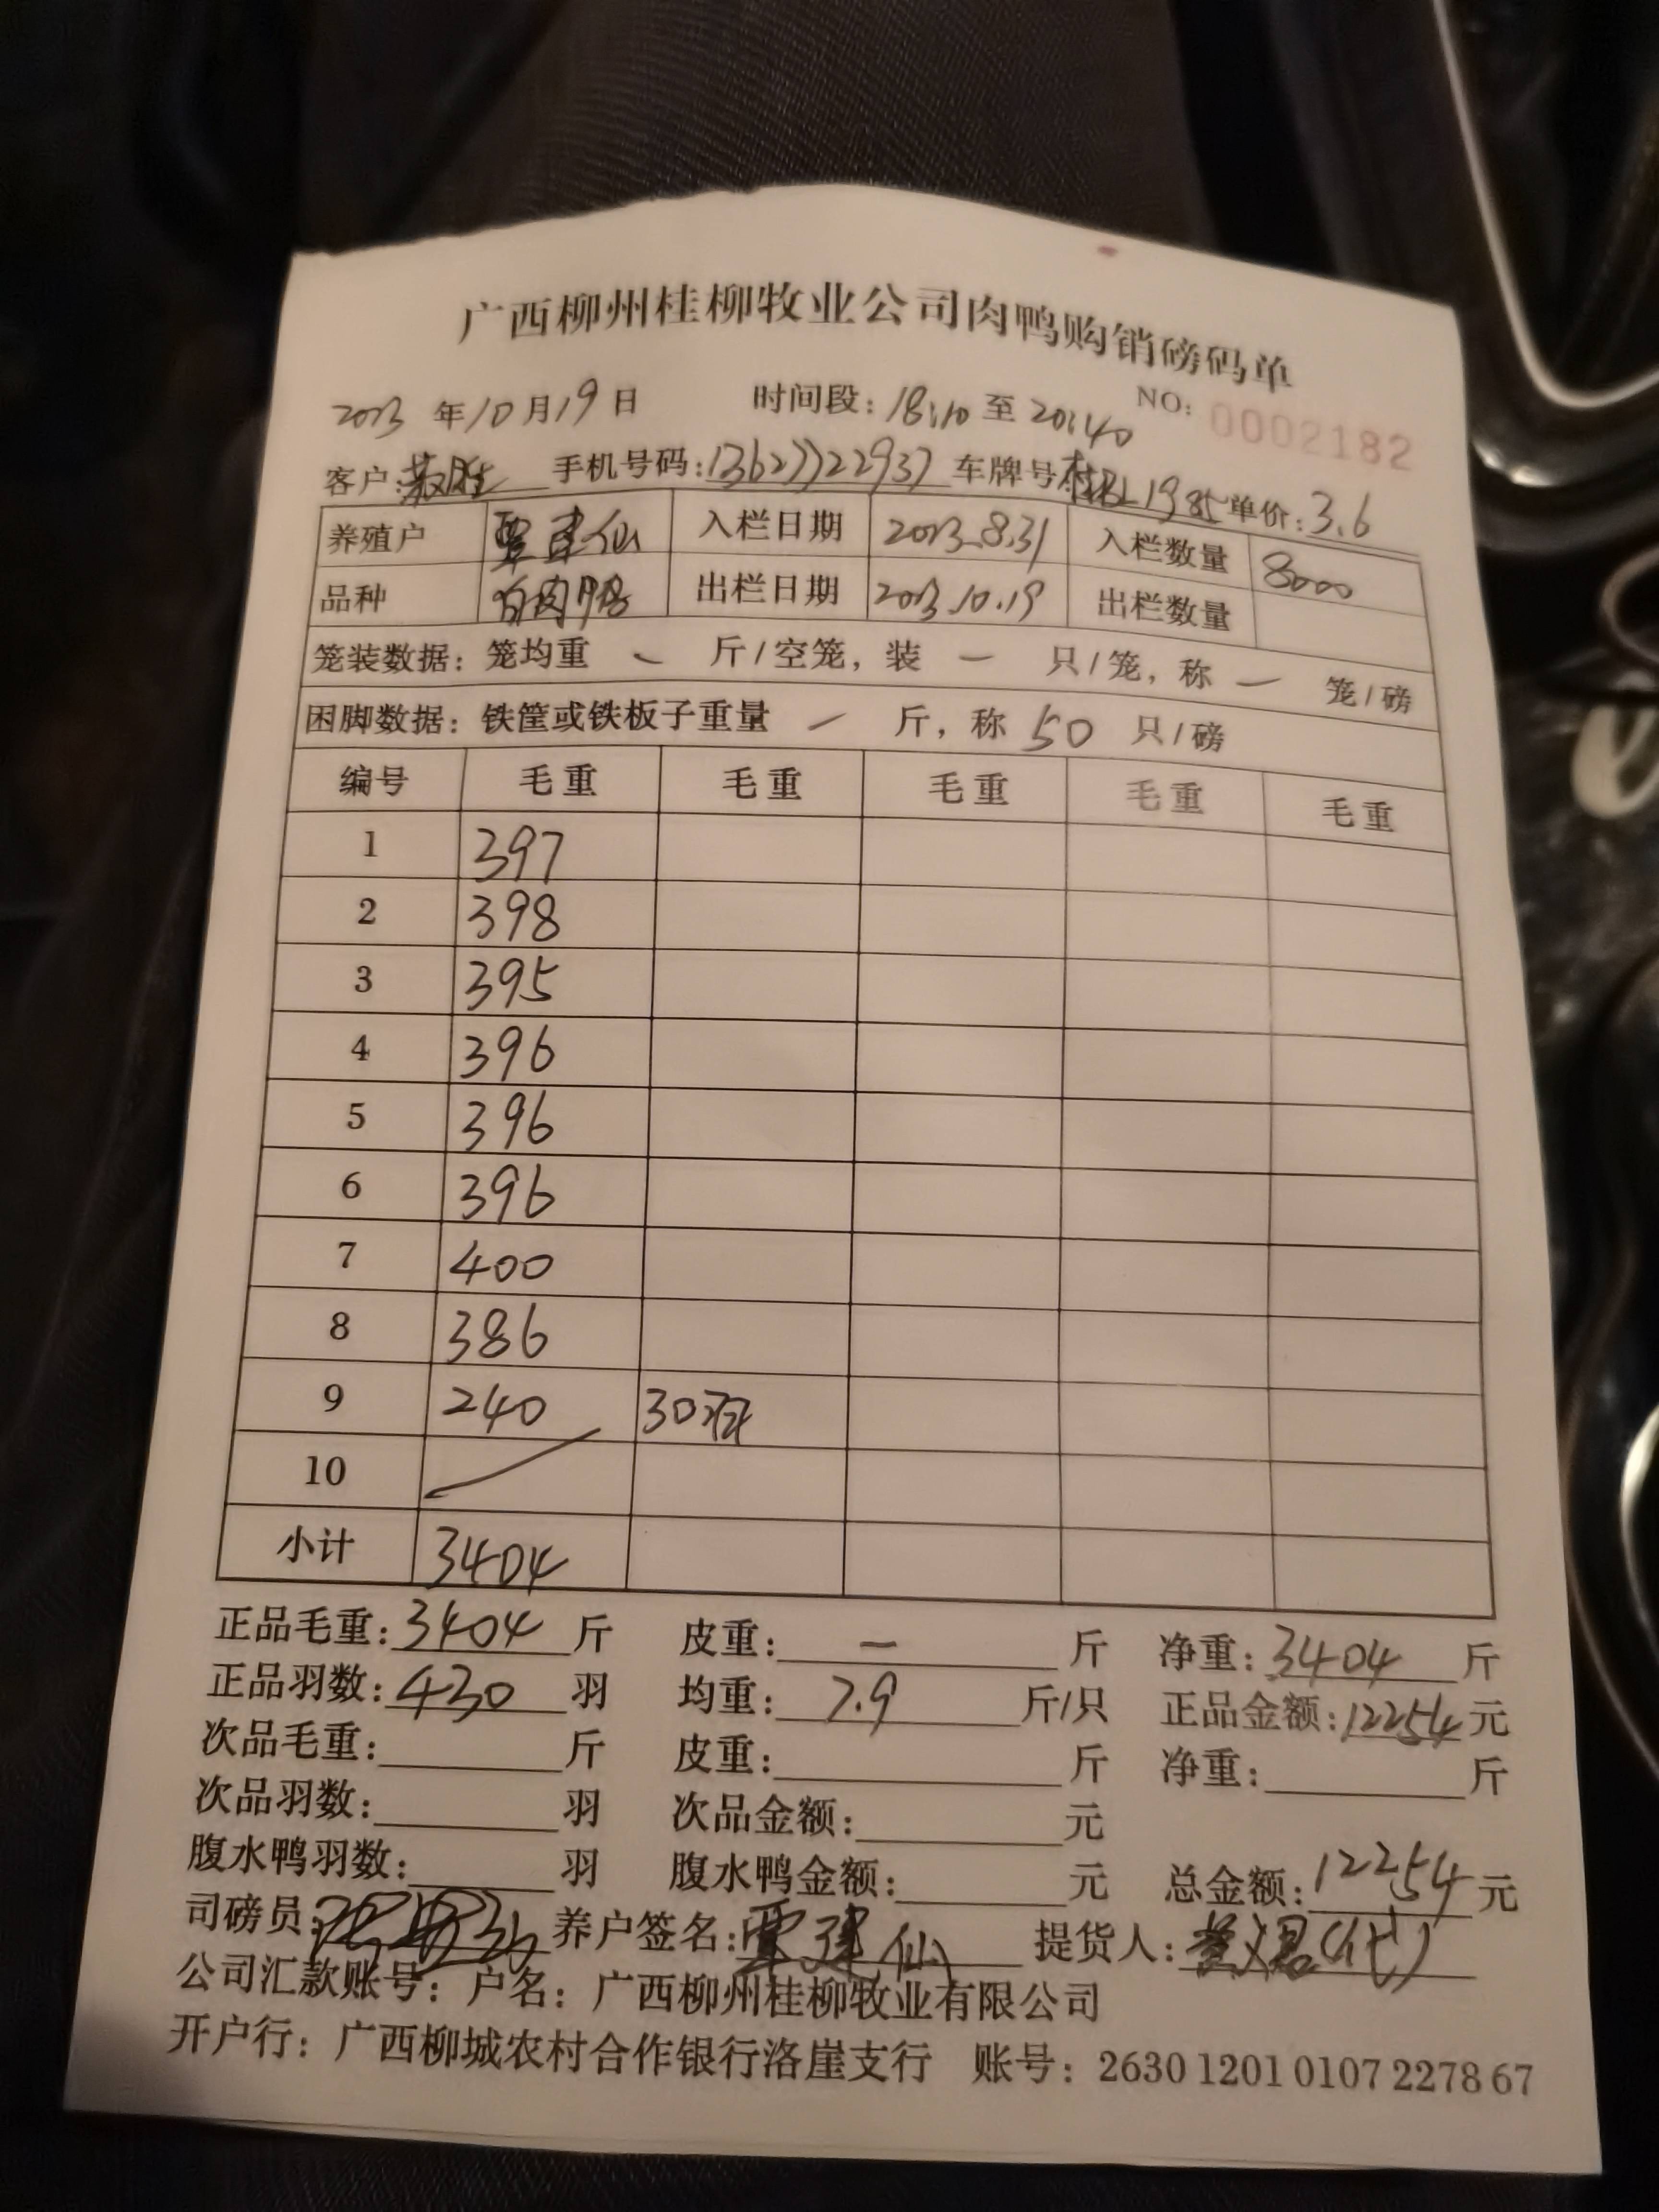 广西柳州桂柳牧业公司肉鸭购销磅码单
2023 年 10 月 19 日 时间段: 18:10 至 20:40 NO: 0002182
客户: 手机号码: 13627722937 车牌号 单价: 3.6
养殖户 覃建仙 入栏日期 2023.8.31 入栏数量 8000
品种 白肉鸭 出栏日期 2023.10.19 出栏数量
笼装数据: 笼均重 — 斤/空笼, 装 — 只/笼, 称 — 笼/磅
困脚数据: 铁筐或铁板子重量 — 斤, 称 50 只/磅
编号 毛重 毛重 毛重 毛重 毛重
1 397
2 398
3 395
4 396
5 396
6 396
7 400
8 386
9 240 30羽
10
小计 3404
正品毛重: 3404 斤 皮重: — 斤 净重: 3404 斤
正品羽数: 430 羽 均重: 7.9 斤/只 正品金额: 12254 元
次品毛重: 斤 皮重: 斤 净重: 斤
次品羽数: 羽 次品金额: 元
腹水鸭羽数: 羽 腹水鸭金额: 元 总金额: 12254 元
司磅员: 养户签名: 覃建仙 提货人: (代)
公司汇款账号: 户名: 广西柳州桂柳牧业有限公司
开户行: 广西柳城农村合作银行洛崖支行 账号: 2630 1201 0107 2278 67